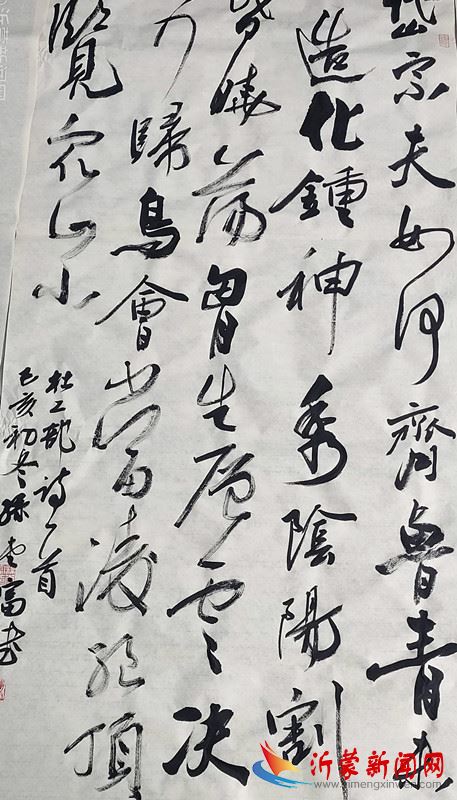 岱宗夫如何齊魯青未
造化鍾神秀陰陽割
昏曉蕩胷生層雲决
入歸鳥會當凌絕頂
覽衆山小
杜工部詩一首
己亥初冬孫富书
沂蒙新闻网
www.yimengxinwen.com